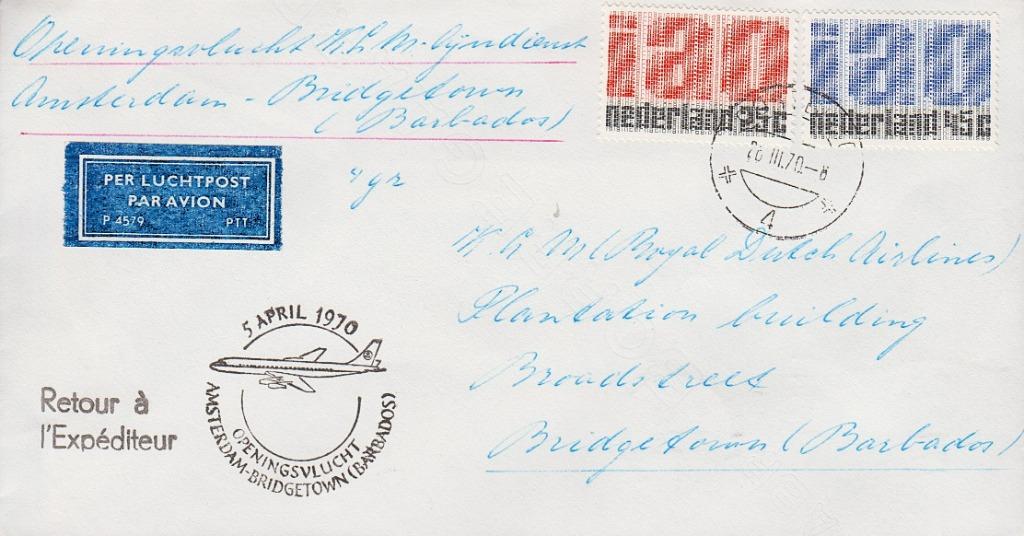 Openingsvlucht K.L.M.-lijndienst
Amsterdam - Bridgetown
(Barbados)
iao
nederland 25c
iao
nederland 45c
26.III.70-8
4
PER LUCHTPOST
PAR AVION
P 4579 PTT
4 gr
K.L.M (Royal Dutch Airlines)
Plantation building
Broadstreet
Bridgetown (Barbados)
5 APRIL 1970
OPENINGSVLUCHT
AMSTERDAM-BRIDGETOWN (BARBADOS)
Retour à
l'Expéditeur